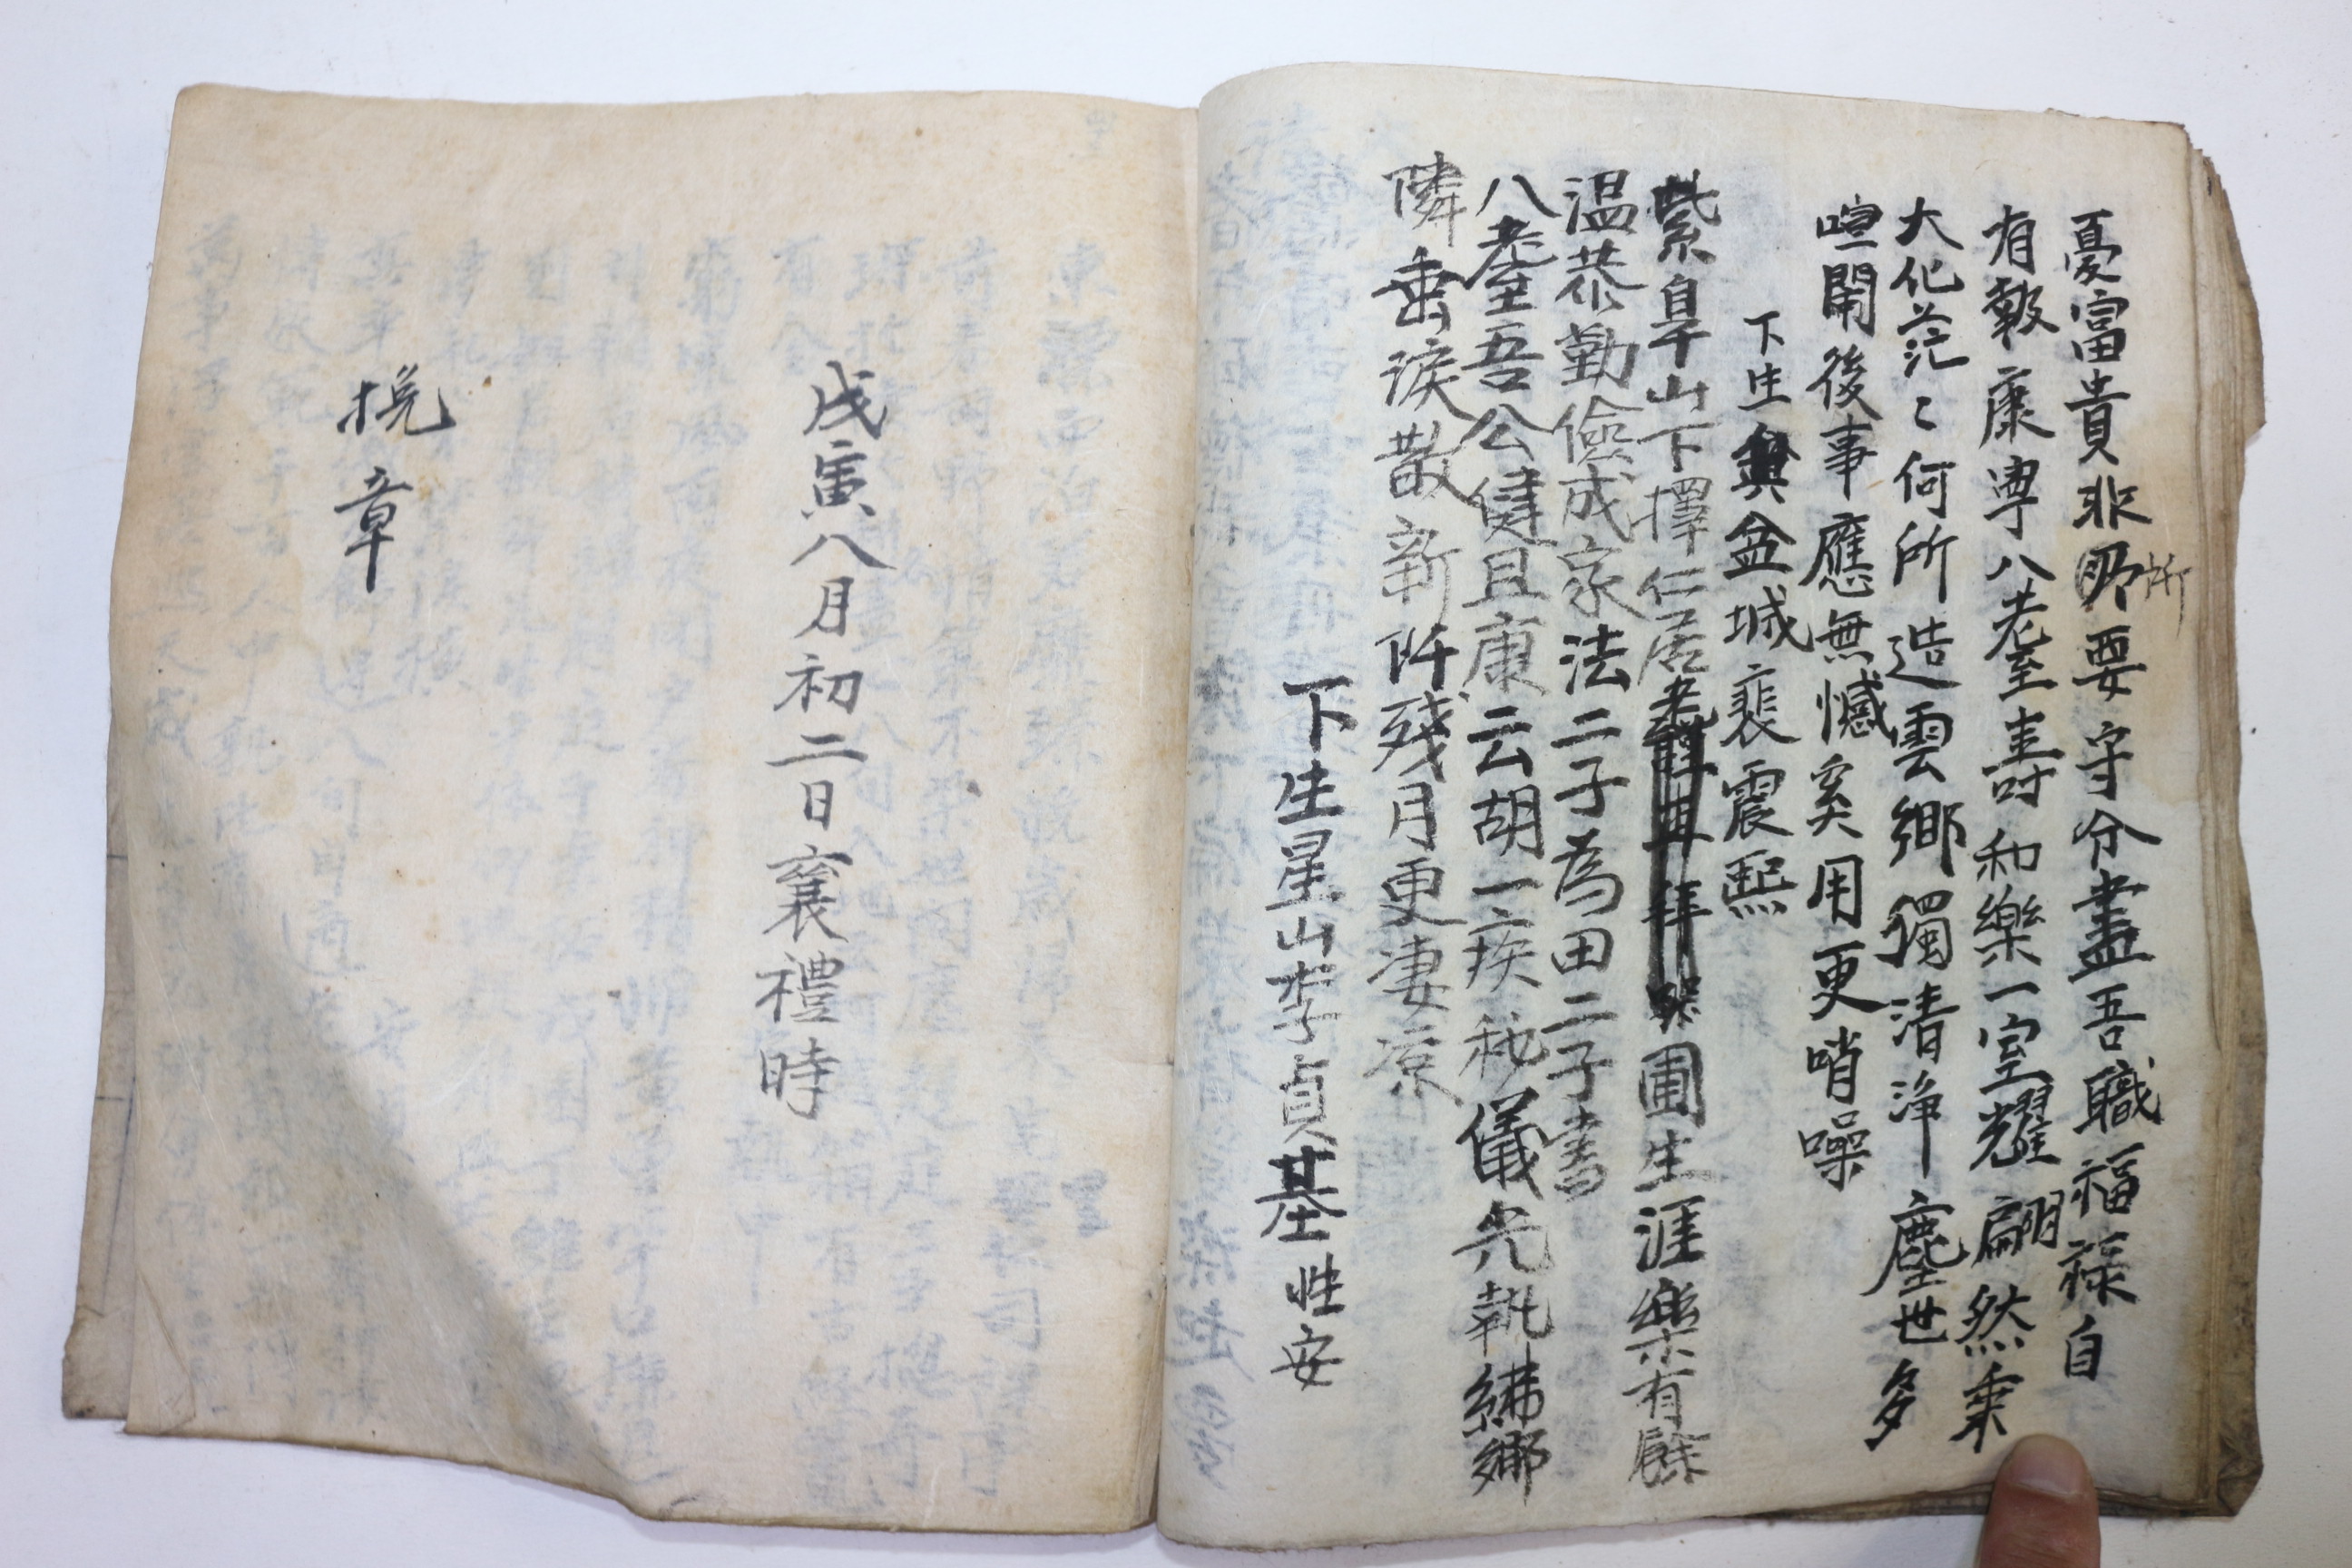 憂富貴非所要守分盡吾職福祿自
所
有報康寧八耋壽和樂一室耀翩然乘
大化茫〻何所造雲鄕獨清淨塵世多
喧鬧後事應無憾奚用更哨噪
下生盆城裵震熙
紫皐山下擇仁居圃生涯樂有餘
溫恭勤儉成家法二子爲田二子書
八耋吾公健且康云胡一疾秘儀光執紼鄕
隣垂淚散新阡殘月更凄凉
下生星山李貞基性安
戊寅八月初二日襄禮時
挽章